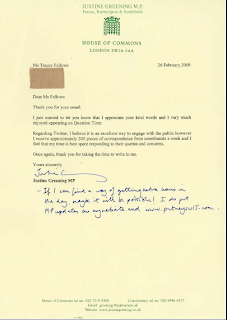 JUSTINE GREENING M.P.
Putney, Roehampton & Southfields
HOUSE OF COMMONS
LONDON SW1A 0AA
Ms Tracey Fellows
26 February 2009
Dear Ms Fellows
Thank you for your email.
I just wanted to let you know that I appreciate your kind words and I very much
enjoyed appearing on Question Time.
Regarding Twitter, I believe it is an excellent way to engage with the public however
I receive approximately 200 pieces of correspondence from constituents a week and
feel that my time is best spent responding to their queries and concerns.
Once again, thank you for taking the time to write to me.
Yours sincerely
Justine Greening MP
- If I can find a way of getting extra hours in
the day maybe it will be possible! I do put
MP updates on my website and www.putneysw15.com.
House of Commons tel no:
Constituency tel no:
Email:
Website: www.justinegreening.co.uk